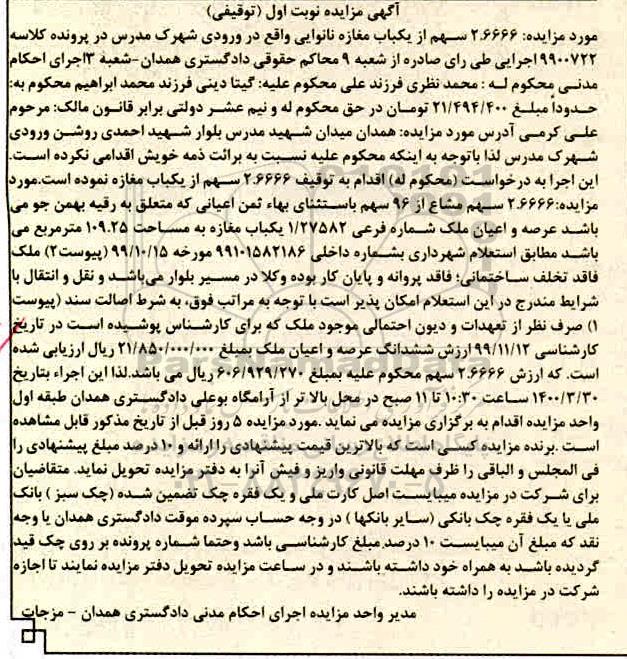 آگهی مزایده نوبت اول (توقیفی)
مورد مزایده: ۲.۶۶۶۶ سهم از یکباب مغازه نانوایی واقع در ورودی شهرک مدرس در پرونده کلاسه
۹۹۰۰۷۲۲ اجرایی طی رای صادره از شعبه ۹ محاکم حقوقی دادگستری همدان-شعبه ۳اجرای احکام
مدنی محکوم له : محمد نظری فرزند علی محکوم علیه: گیتا دینی فرزند محمد ابراهیم محکوم به:
حدوداً مبلغ ۲۱/۴۹۴/۴۰۰ تومان در حق محکوم له و نیم عشر دولتی برابر قانون مالک: مرحوم
علی کرمی آدرس مورد مزایده: همدان میدان شهید مدرس بلوار شهید احمدی روشن ورودی
شهرک مدرس لذا باتوجه به اینکه محکوم علیه نسبت به برائت ذمه خویش اقدامی نکرده است.
این اجرا به درخواست (محکوم له) اقدام به توقیف ۲.۶۶۶۶ سهم از یکباب مغازه نموده است.مورد
مزایده:۲.۶۶۶۶ سهم مشاع از ۹۶ سهم باستثنای بهاء ثمن اعیانی که متعلق به رقیه بهمن جو می
باشد عرصه و اعیان ملک شماره فرعی ۱/۲۷۵۸۲ یکباب مغازه به مساحت ۱۰۹.۲۵ مترمربع می
باشد مطابق استعلام شهرداری بشماره داخلی ۹۹۱۰۱۵۸۲۱۸۶ مورخه ۹۹/۱۰/۱۵ (پیوست۲) ملک
فاقد تخلف ساختمانی؛ فاقد پروانه و پایان کار بوده وکلا در مسیر بلوار می‌باشد و نقل و انتقال با
شرایط مندرج در این استعلام امکان پذیر است با توجه به مراتب فوق، به شرط اصالت سند (پیوست
۱) صرف نظر از تعهدات و دیون احتمالی موجود ملک که برای کارشناس پوشیده است در تاریخ
کارشناسی ۹۹/۱۱/۱۲ ارزش ششدانگ عرصه و اعیان ملک بمبلغ ۲۱/۸۵۰/۰۰۰/۰۰۰ ریال ارزیابی شده
است. که ارزش ۲.۶۶۶۶ سهم محکوم علیه بمبلغ ۶۰۶/۹۲۹/۲۷۰ ریال می باشد.لذا این اجراء بتاریخ
۱۴۰۰/۳/۳۰ ساعت ۱۰:۳۰ تا ۱۱ صبح در محل بالا تر از آرامگاه بوعلی دادگستری همدان طبقه اول
واحد مزایده اقدام به برگزاری مزایده می نماید .مورد مزایده ۵ روز قبل از تاریخ مذکور قابل مشاهده
است .برنده مزایده کسی است که بالاترین قیمت پیشنهادی را ارائه و ۱۰ درصد مبلغ پیشنهادی را
فی المجلس و الباقی را ظرف مهلت قانونی واریز و فیش آنرا به دفتر مزایده تحویل نماید. متقاضیان
برای شرکت در مزایده میبایست اصل کارت ملی و یک فقره چک تضمین شده (چک سبز ) بانک
ملی یا یک فقره چک بانکی (سایر بانکها ) در وجه حساب سپرده موقت دادگستری همدان یا وجه
نقد که مبلغ آن میبایست ۱۰ درصد مبلغ کارشناسی باشد وحتما شماره پرونده بر روی چک قید
گردیده باشد به همراه خود داشته باشند و در ساعت مزایده تحویل دفتر مزایده نمایند تا اجازه
شرکت در مزایده را داشته باشند.
مدیر واحد مزایده اجرای احکام مدنی دادگستری همدان - مزجات